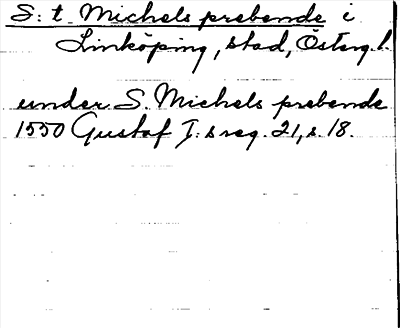 S:t Michels prebende i
Linköping, stad, Österg.l.
under S. Michels prebende
1550 Gustaf I:s reg. 21, s. 18.